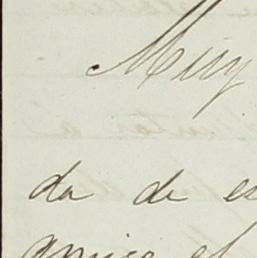 Muy
da de es
amigo el